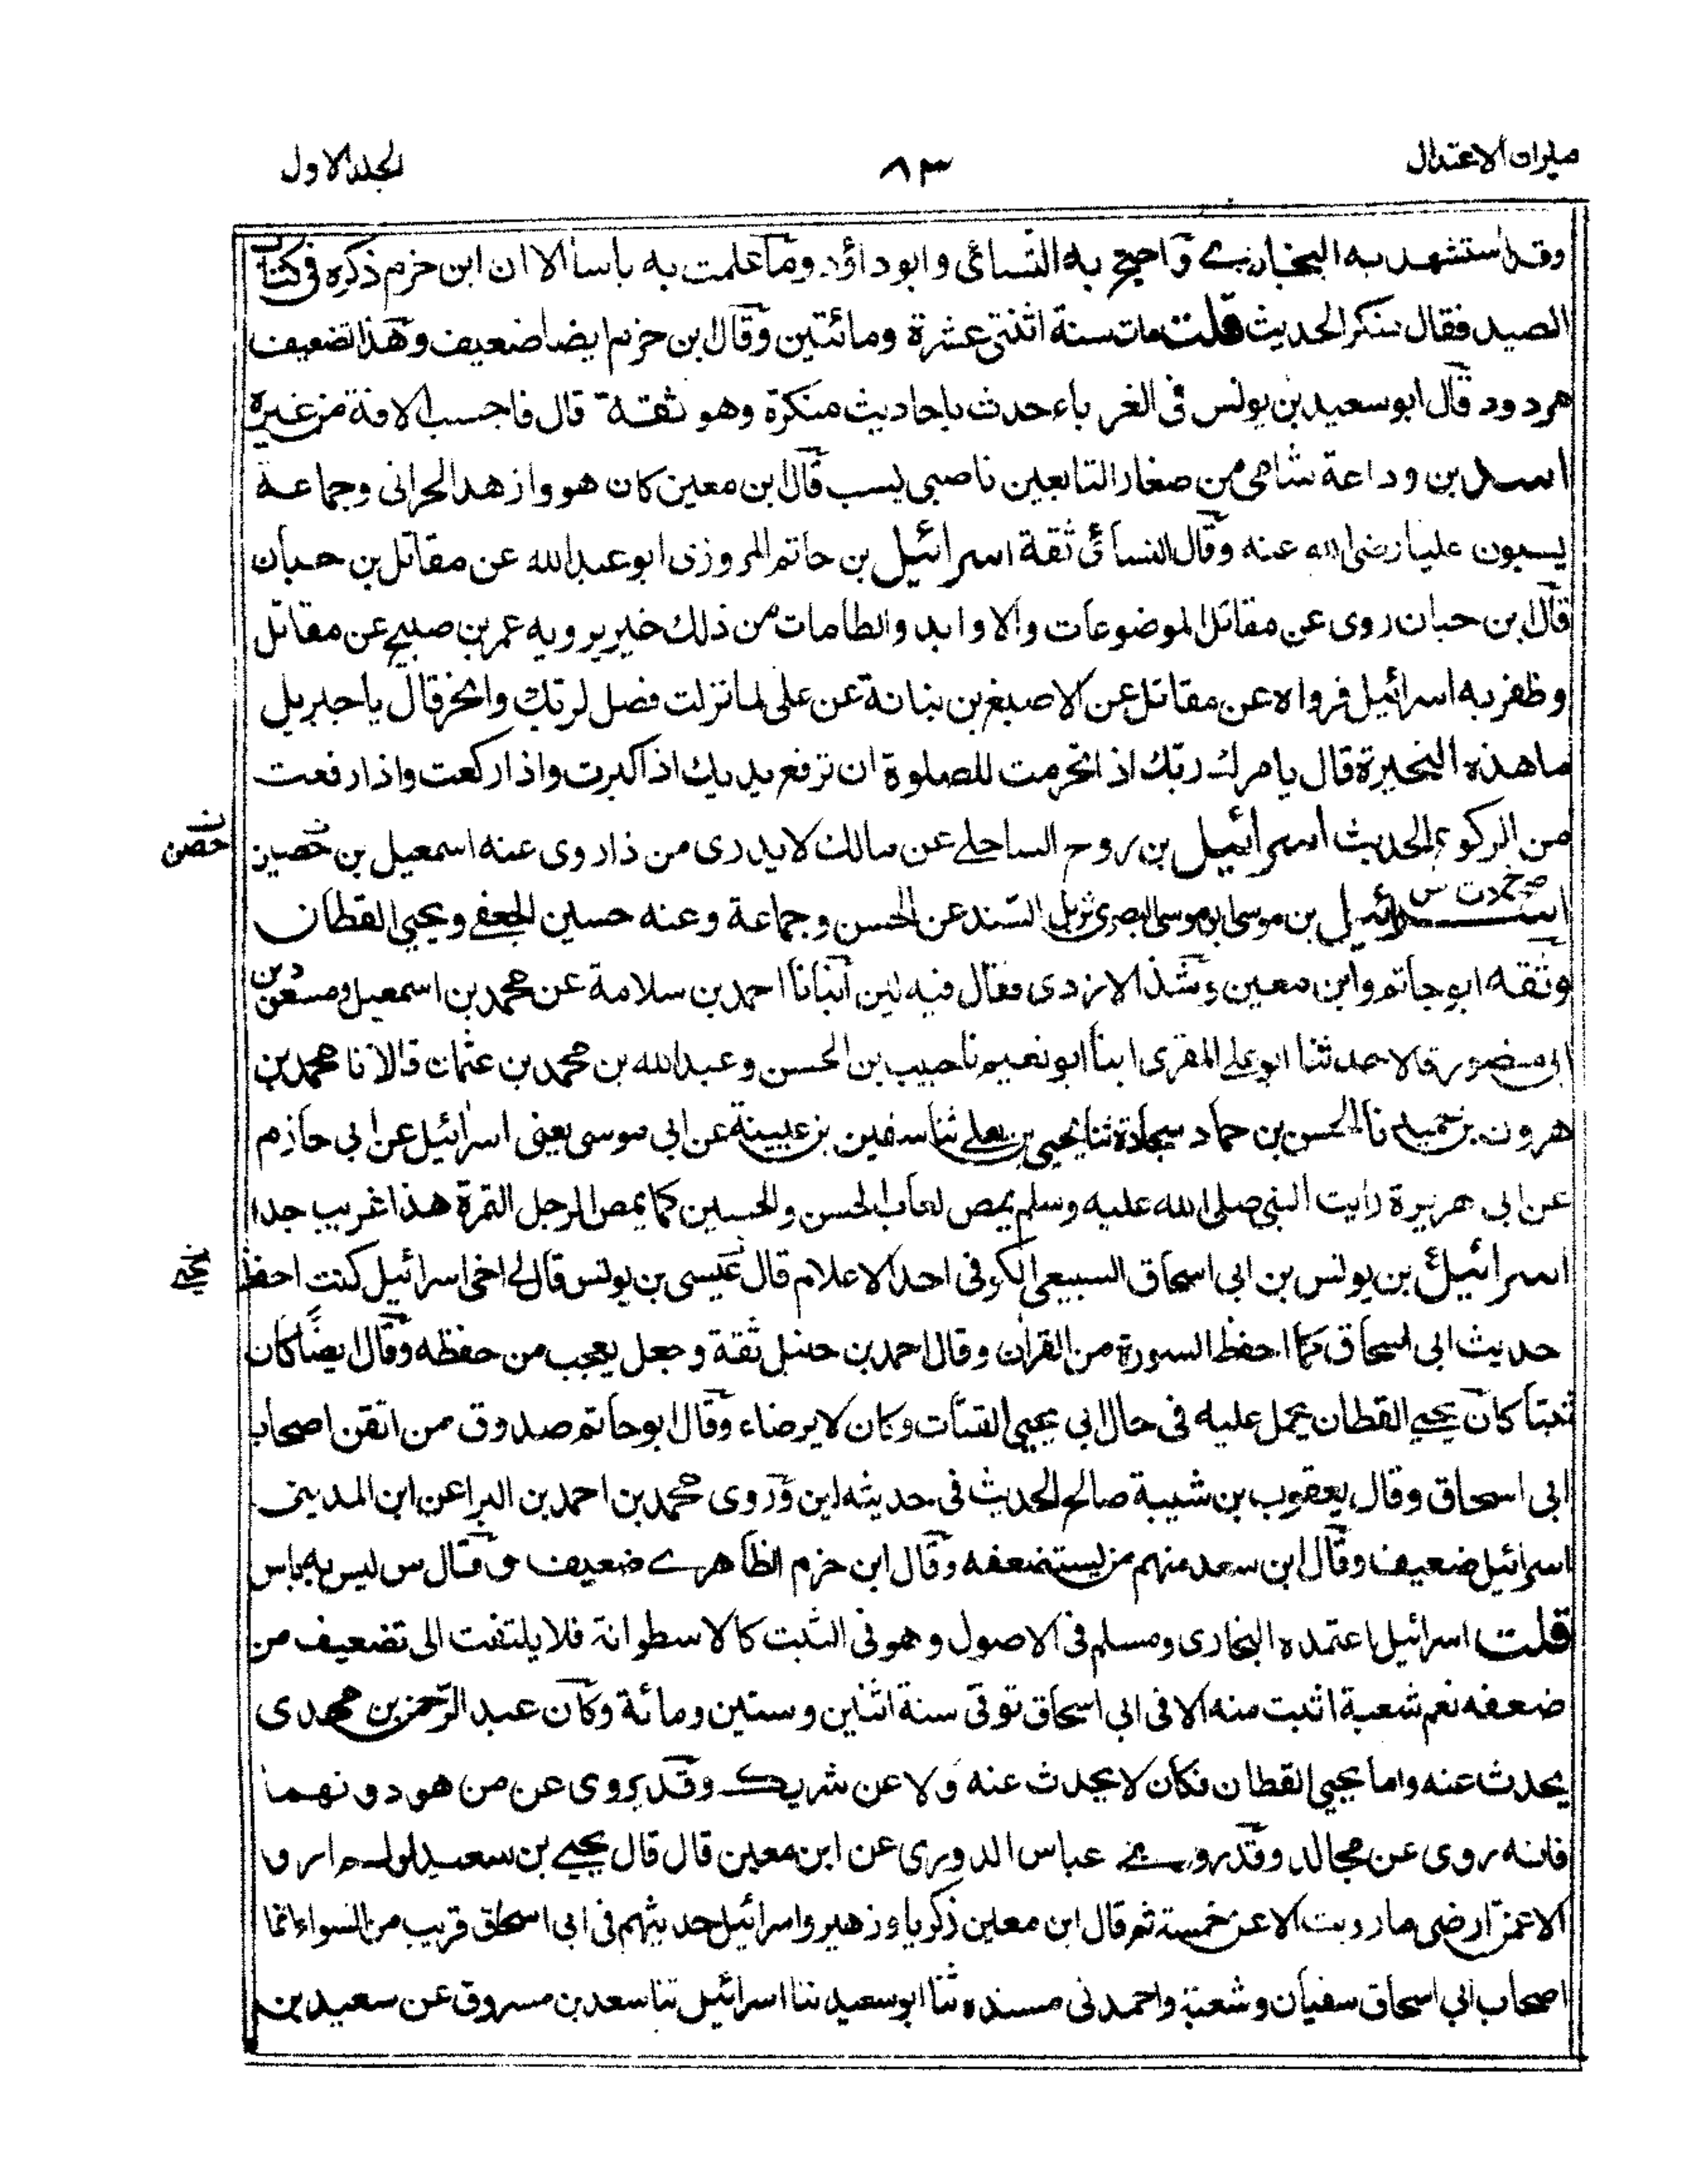 ميزان الاعتدال
٨٣
المجلد الاول
وقد استشهد به البخارى واحتج به النسائى وابو داؤد وما علمت به باسا الا ان ابن حزم ذكره فى كتاب
الصيد فقال منكر الحديث قلت مات سنة اثنتى عشرة ومائتين وقال ابن حزم ايضا ضعيف وهذا تضعيف
مردود قال ابو سعيد بن يونس فى الغرباء حدث باحاديث منكرة وهو ثقة قال فاحسب الافة من غيره
اسد بن وداعة شامى من صغار التابعين ناصبى يسب قال ابن معين كان هو وازهد الحرانى وجماعة
يسبون عليا رضى الله عنه وقال النسائى ثقة اسرائيل بن حاتم المروزى ابو عبد الله عن مقاتل بن حبان
قال ابن حبان روى عن مقاتل الموضوعات والاوابد والطامات من ذلك خبر يرويه عمر بن صبيح عن مقاتل
وظفر به اسرائيل فرواه عن مقاتل عن الاصبغ بن نباتة عن على لما نزلت فصل لربك وانحر قال يا جبريل
ما هذه النحيرة قال يامرك ربك اذا تحرمت للصلوة ان ترفع يديك اذا كبرت واذا ركعت واذا رفعت
من الركوع الحديث اسرائيل بن روح الساحلے عن مالك لا يدرى من ذا روى عنه اسمعيل بن حصين
ن حصن
صح خ د ت س
اسرائيل بن موسى ابو موسى البصرى نزيل السند عن الحسن وجماعة وعنه حسين الجعفے ويحيى القطان
وثقه ابو حاتم وابن معين وشذ الازدى فقال فيه لين انبانا احمد بن سلامة عن محمد بن اسمعيل ومسعود بن
ابى منصور قالا حدثنا ابو علے المقرى ابنا ابو نعيم نا حبيب بن الحسن وعبد الله بن محمد بن عثمان قالا نا محمد بن
هرون بن حميد نا الحسن بن حماد سجادة ثنا يحيى بن يعلے ثنا سفين بن عيينة عن ابى موسى يعنى اسرائيل عن ابى حازم
عن ابى هريرة رايت النبى صلى الله عليه وسلم يمص لعاب الحسن والحسين كما يمص الرجل التمرة هذا غريب جدا
اسرائيل بن يونس بن ابى اسحاق السبيعى الكوفى احد الاعلام قال عيسى بن يونس قال لے اخى اسرائيل كنت احفظ
حديث ابى اسحاق كما احفظ السورة من القران وقال احمد بن حنبل ثقة وجعل يعجب من حفظه وقال ايضا كان
ثبتا كان يحيے القطان يحمل عليه فى حال ابى يحيى القتات وكان لا يرضاء وقال ابو حاتم صدوق من اتقن اصحاب
ابى اسحاق وقال يعقوب بن شيبة صالح الحديث فى حديثه لين وروى محمد بن احمد بن البرا عن ابن المدينى
اسرائيل ضعيف وقال ابن سعد منهم من يستضعفه وقال ابن حزم الظاهرے ضعيف وقال س ليس به باس
قلت اسرائيل اعتمده البخارى ومسلم فى الاصول وهو فى الثبت كالاسطوانة فلا يلتفت الى تضعيف من
ضعفه نعم شعبة اثبت منه الا فى ابى اسحاق توفى سنة اثنين وستين ومائة وكان عبد الرحمن بن مهدى
يحدث عنه واما يحيى القطان فكان لا يحدث عنه ولا عن شريك وقد يروى عن من هو دونهما
فانه روى عن مجالد وقد روے عباس الدورى عن ابن معين قال قال يحيے بن سعيد لو لم ارو
الا عمن ارضى ما رويت الا عن خمسة ثم قال ابن معين زكريا وزهير واسرائيل حديثهم فى ابى اسحاق قريب من السواء انما
اصحاب ابى اسحاق سفيان وشعبة واحمد فى مسنده ثنا ابو سعيد ثنا اسرائيل ثنا سعد بن مسروق عن سعيد بن